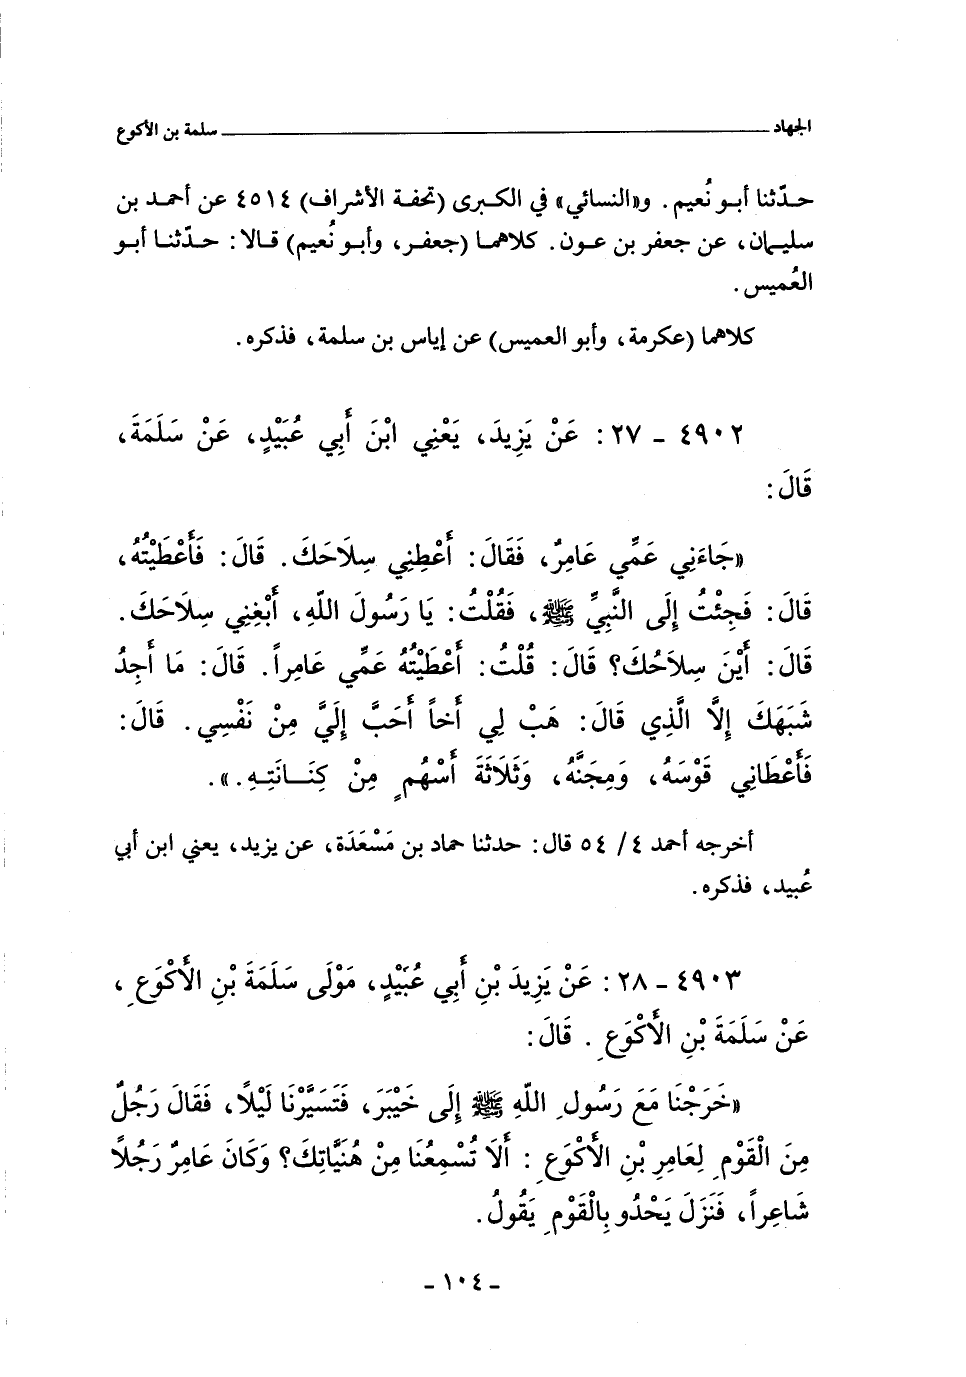 الجهاد ــــــــــ سلمة بن الأكوع
حـدّثنا أبـو نُعيم. و«النسائي» في الكـبرى (تحفـة الأشراف) ٤٥١٤ عن أحمـد بن
سليـمان، عن جعفر بن عـون. كلاهمـا (جعفـر، وأبـو نُعيم) قـالا: حـدّثنـا أبـو
العُميس.
كلاهما (عكرمة، وأبو العميس) عن إياس بن سلمة، فذكره.
٤٩٠٢ - ٢٧: عَنْ يَزِيدَ، يَعْنِي ابْنَ أَبِي عُبَيْدٍ، عَنْ سَلَمَةَ،
قَالَ:
«جَاءَنِي عَمِّي عَامِرٌ، فَقَالَ: أَعْطِنِي سِلَاحَكَ. قَالَ: فَأَعْطَيْتُهُ،
قَالَ: فَجِئْتُ إِلَى النَّبِيِّ ﷺ، فَقُلْتُ: يَا رَسُولَ اللّهِ، أَبْغِنِي سِلَاحَكَ.
قَالَ: أَيْنَ سِلَاحُكَ؟ قَالَ: قُلْتُ: أَعْطَيْتُهُ عَمِّي عَامِراً. قَالَ: مَا أَجِدُ
شَبَهَكَ إِلَّا الَّذِي قَالَ: هَبْ لِي أَخاً أَحَبَّ إِلَيَّ مِنْ نَفْسِي. قَالَ:
فَأَعْطَانِي قَوْسَهُ، وَمِجَنَّهُ، وَثَلَاثَةَ أَسْهُمٍ مِنْ كِنَـانَتِهِ.».
أخرجه أحمد ٤/ ٥٤ قال: حدثنا حماد بن مَسْعَدَة، عن يزيد، يعني ابن أبي
عُبيد، فذكره.
٤٩٠٣ - ٢٨: عَنْ يَزِيدَ بْنِ أَبِي عُبَيْدٍ، مَوْلَى سَلَمَةَ بْنِ الْأَكْوَعِ،
عَنْ سَلَمَةَ بْنِ الْأَكْوَعِ. قَالَ:
«خَرَجْنَا مَعَ رَسُولِ اللّهِ ﷺ إِلَى خَيْبَرَ، فَتَسَيَّرْنَا لَيْلًا، فَقَالَ رَجُلٌ
مِنَ الْقَوْمِ لِعَامِرِ بْنِ الْأَكْوَعِ: أَلَا تُسْمِعُنَا مِنْ هُنَيَّاتِكَ؟ وَكَانَ عَامِرٌ رَجُلًا
شَاعِراً، فَنَزَلَ يَحْدُو بِالْقَوْمِ يَقُولُ.
- ١٠٤ -